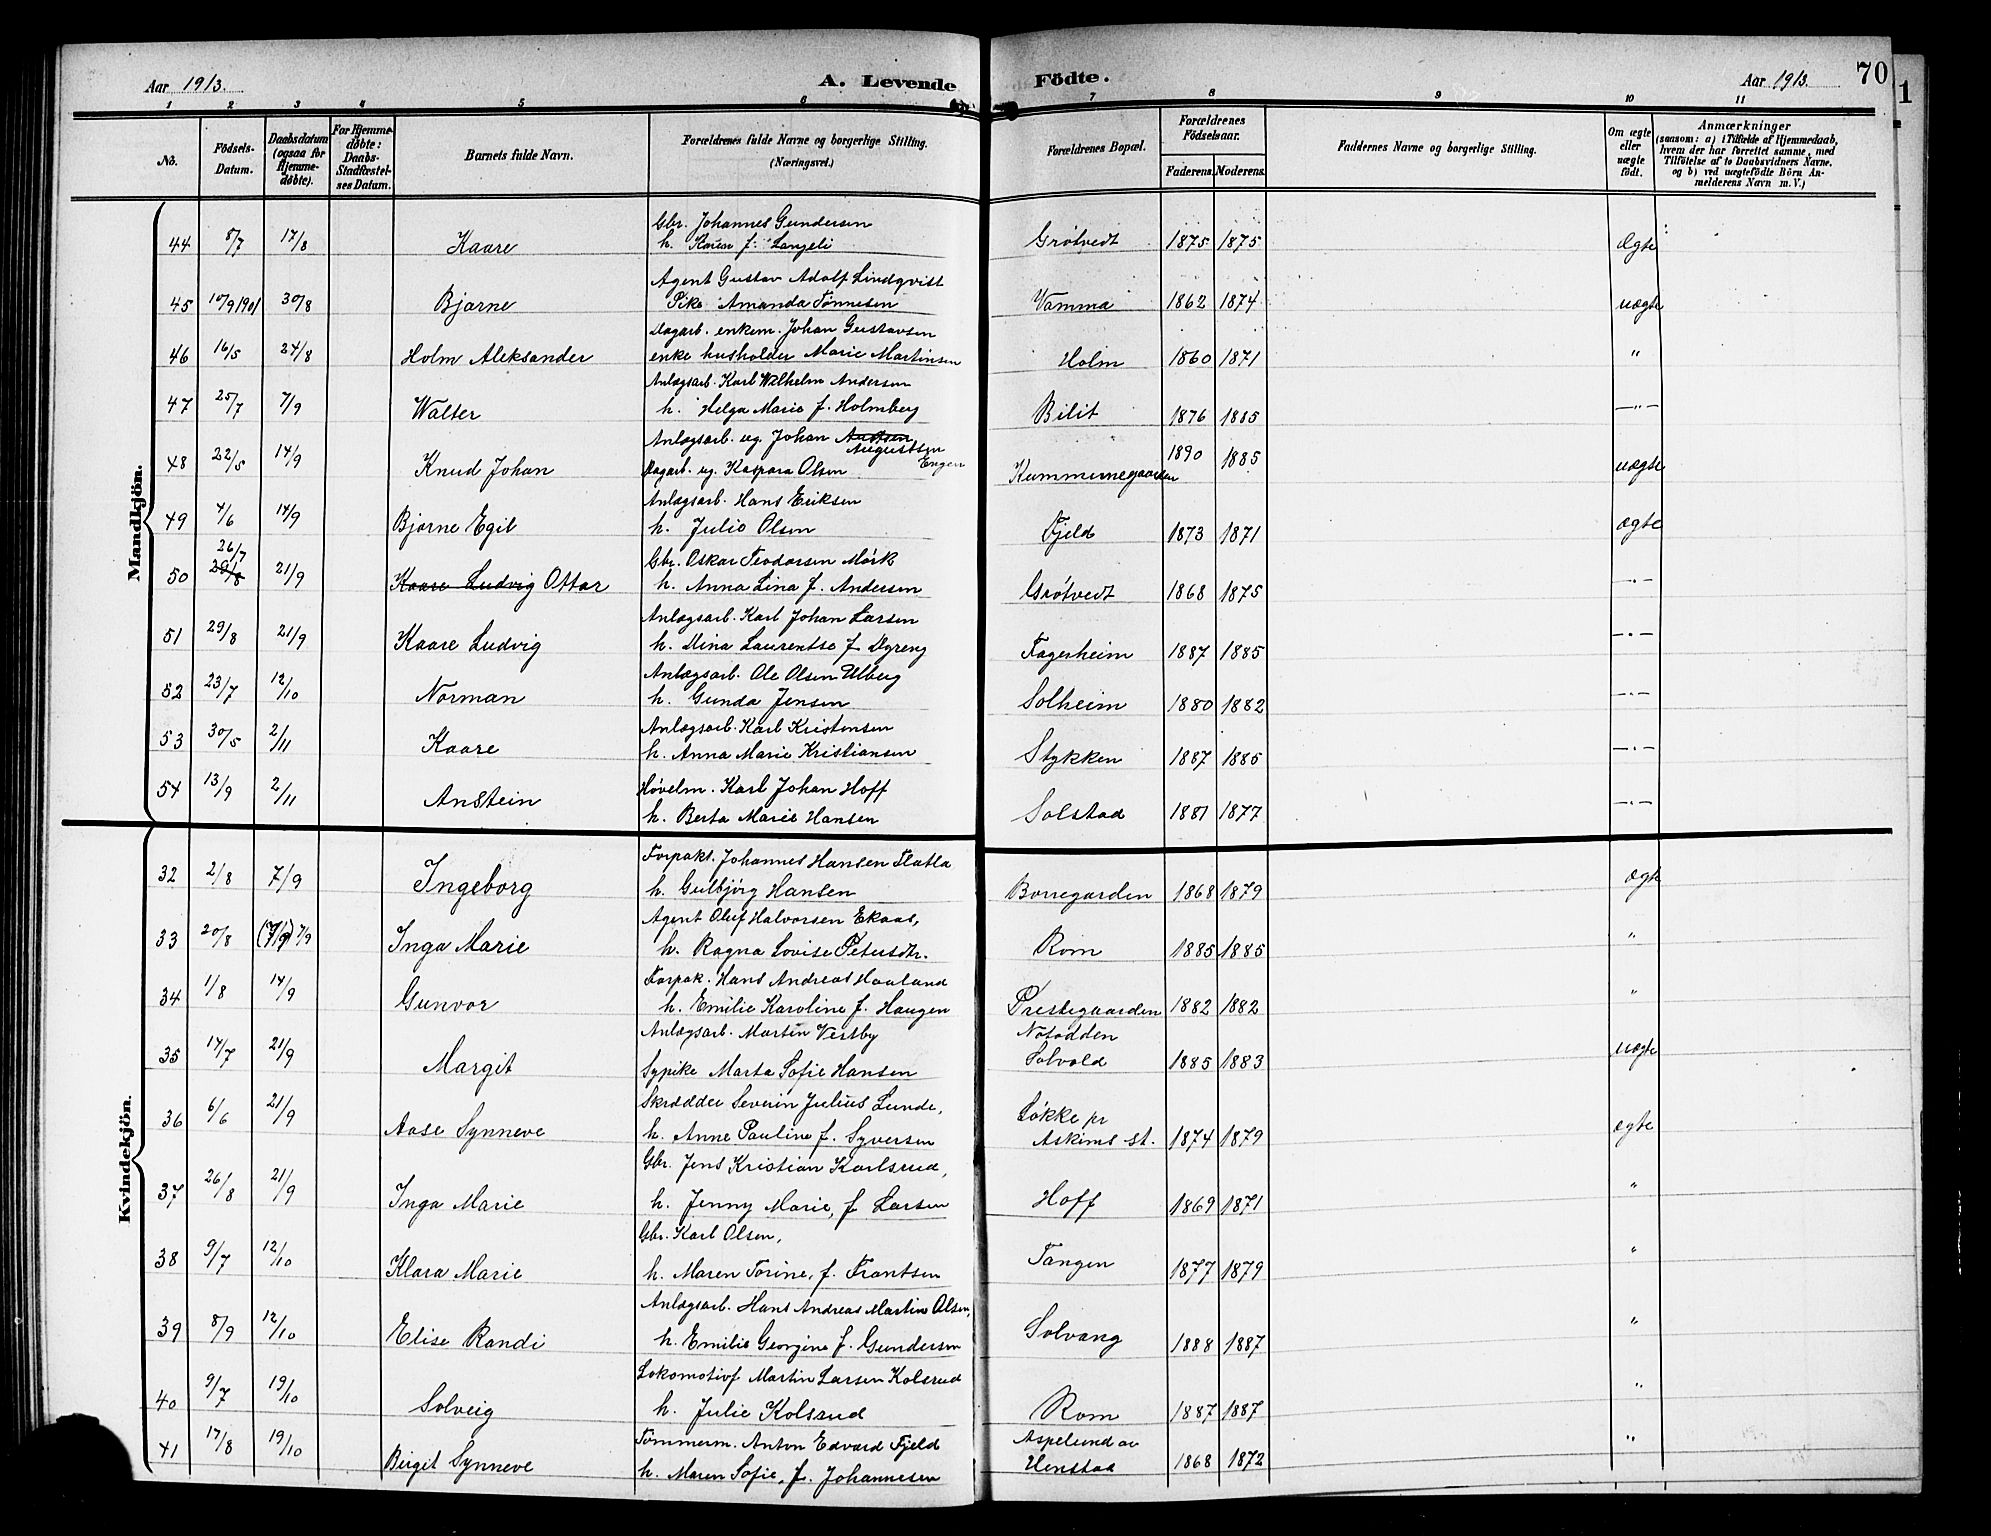 Aar 1913. A. Levende Födte. Aar 1913. 70
1 2 3 4 5 6 7 8 9 10 11
No. Födsels-Datum. Daabsdatum (ogsaa for Hjemmedöbte). For Hjemmedöbte: Daabs-Stadfæstelses Datum. Barnets fulde Navn. Forældrenes fulde Navne og borgerlige Stilling. (Næringsvei.) Forældrenes Bopæl. Forældrenes Födselsaar. Faderens. Moderens. Faddernes Navne og borgerlige Stilling. Om ægte eller uægte födt. Anmærkninger (saasom: a) i Tilfælde af Hjemmedaab, hvem der har forrettet samme, med Tilföielse af to Daabsvidners Navne, og b) ved uægtefödte Börn Anmelderens Navn m. V.)
Mandkjön.
Gbr. Johannes Gundersen
44 8/7 17/8 Kaare h. Karen f. Langeli Grøtvedt 1875 1875 Ægte
Agent Gustav Adolf Lindqvist
45 10/9 1901 30/8 Bjarne Pike Amanda Tønnesen Vamma 1862 1874 uægte
Dagarb. enkem. Johan Gustavsen
46 16/5 24/8 Holm Aleksander enke husholder Marie Martinsen Holm 1860 1871 "
Anlægsarb. Karl Wilhelm Andersen
47 25/7 7/9 Walter h. Helga Marie f. Holmberg Bilit 1876 1885 — " —
Anlægsarb. ug. Johan Augustsen Engen
48 22/5 14/9 Knud Johan Dagarb. ug. Kaspara Olsen Kummunegaarden 1890 1885 uægte
Anlægsarb. Hans Eriksen
49 4/6 14/9 Bjarne Egil h. Julie Olsen Fjeld 1873 1871 ægte
26/7 Gbr. Oskar Teodorsen Mørk
50 29/8 21/9 Kaare Ludvig Ottar h. Anna Lina f. Andersen Grøtvedt 1868 1875 — " —
Anlægsarb. Karl Johan Larsen
51 29/8 21/9 Kaare Ludvig h. Mina Laurentse f. Dyreng Fagerheim 1887 1885 — " —
Anlægsarb. Ole Olsen Ulberg
52 23/7 12/10 Norman h. Gunda Jensen Solheim 1880 1882 — " —
Anlægsarb. Karl Kristensen
53 30/5 2/11 Kaare h. Anna Marie Kristiansen Stykken 1887 1885 — " —
Høvelm. Karl Johan Hoff
54 13/9 2/11 Anstein h. Berta Marie Hansen Solstad 1881 1877 — " —
Kvindekjön.
Forpakt. Johannes Hansen Flatla
32 2/8 7/9 Ingeborg h. Gulbjørg Hansen Borregarden 1868 1879 ægte
Agent Oluf Halvorsen Ekaas,
33 20/8 (7/9) 7/9 Inga Marie h. Ragna Lovise Petersdtr. Rom 1885 1885 "
Forpak. Hans Andreas Haaland
34 1/8 14/9 Gunvor h. Emilie Karoline f. Haugen Prestegaarden 1882 1882 "
Anlægsarb. Martin Vestby Notodden
35 17/7 21/9 Margit Sypike Marta Sofie Hansen Solvold 1885 1883 uægte
Skrædder Severin Julius Lunde, Løkke pr
36 6/6 21/9 Aase Synneve h. Anne Pauline f. Syversen Askims st. 1874 1879 ægte
Gbr. Jens Kristian Karlsrud,
37 26/8 21/9 Inga Marie h. Jenny Marie, f. Larsen Hoff 1869 1871 "
Gbr. Karl Olsen,
38 9/7 12/10 Klara Marie h. Maren Torine, f. Frantsen Tangen 1877 1879 "
Anlægsarb. Hans Andreas Martin Olsen,
39 8/9 12/10 Elise Randi h. Emilie Georgine f. Gundersen Solvang 1888 1887 "
Lokomotivf Martin Larsen Kolsrud
40 9/7 19/10 Solveig h. Julie Kolsrud Rom 1887 1887 "
Tømmerm. Anton Edvard Fjeld Aspelund av
41 17/8 19/10 Birgit Synneve h. Maren Sofie, f. Johannesen Henstad 1868 1872 "